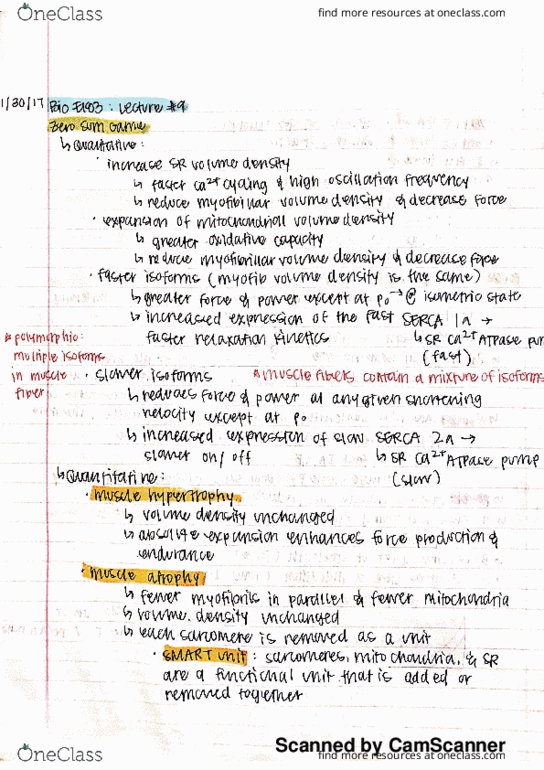 OneClass
find more resources at oneclass.com
1/30/17 Bio E103: Lecture #9
Zero Sum Game
↳ Qualitative:
· increase SR volume density
↳ faster Ca2+ cycling & high oscillation frequency
↳ reduce myofibrillar volume density & decrease force
· expansion of mitochondrial volume density
↳ greater oxidative capacity
↳ reduce myofibrillar volume density & decrease force
· faster isoforms (myofib volume density is the same)
↳ greater force & power except at Po → @ isometric state
↳ increased expression of the fast SERCA 1a →
faster relaxation kinetics
↳ SR Ca2+ ATPase pum
(fast)
* polymorphic:
multiple isoforms
in muscle
fiber
· slower isoforms
* muscle fibers contain a mixture of isoforms
↳ reduces force & power at any given shortening
velocity except at Po
↳ increased expression of slow SERCA 2a →
slower on/off
↳ SR Ca2+ ATPase pump
(slow)
↳ Quantitative:
· muscle hypertrophy
↳ volume density unchanged
↳ absolute expansion enhances force production &
endurance
· muscle atrophy
↳ fewer myofibrils in parallel & fewer mitochondria
↳ volume density unchanged
↳ each sarcomere is removed as a unit
· SMART unit: sarcomeres, mitochondria, & SR
are a functional unit that is added or
removed together
Scanned by CamScanner
OneClass
find more resources at oneclass.com